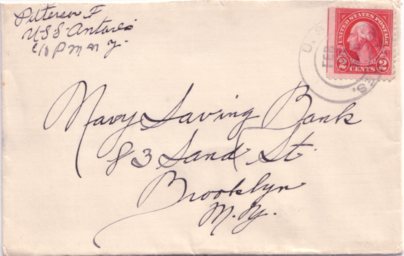 Patterson F
USS Antares
c/o P M N Y.
UNITED STATES POSTAGE
2 CENTS 2
FEB
Navy Saving Bank
83 Sand St.
Brooklyn
N.Y.